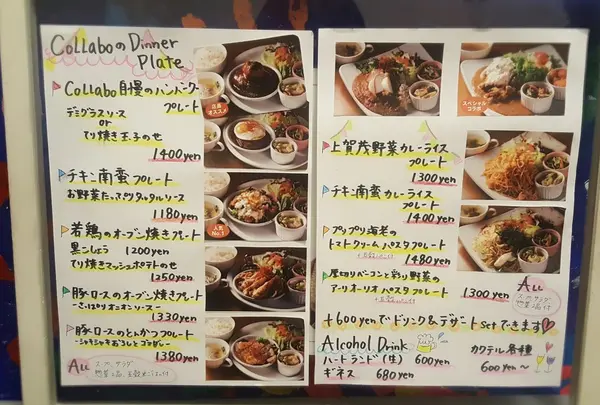 CollaboのDinner
Plate
Collabo自慢のハンバーグ
プレート
デミグラスソース
or
てり焼き玉子のせ
1400yen
チキン南蛮プレート
お野菜たっぷりタルタルソース
1180yen
若鶏のオーブン焼きプレート
黒こしょう 1200yen
てり焼きマッシュポテトのせ
1350yen
豚ロースのオーブン焼きプレート
-さっぱりオニオンソース-
1330yen
豚ロースのとんかつプレート
1380yen
ALL
スープ、サラダ
店長
オススメ
人気
No.1
スペシャル
コラボ
上賀茂野菜カレーライス
プレート
1300yen
チキン南蛮カレーライス
プレート
1400yen
プリプリ海老の
トマトクリームパスタプレート
1480yen
厚切りベーコンと彩り野菜の
アーリオーリオパスタプレート
1300yen
ALL
スープ、サラダ
惣菜2品付
+600yenでドリンク&デザートsetできます♡
Alcohol Drink
ハートランド(生) 600yen
ギネス 680yen
カクテル各種
600yen~